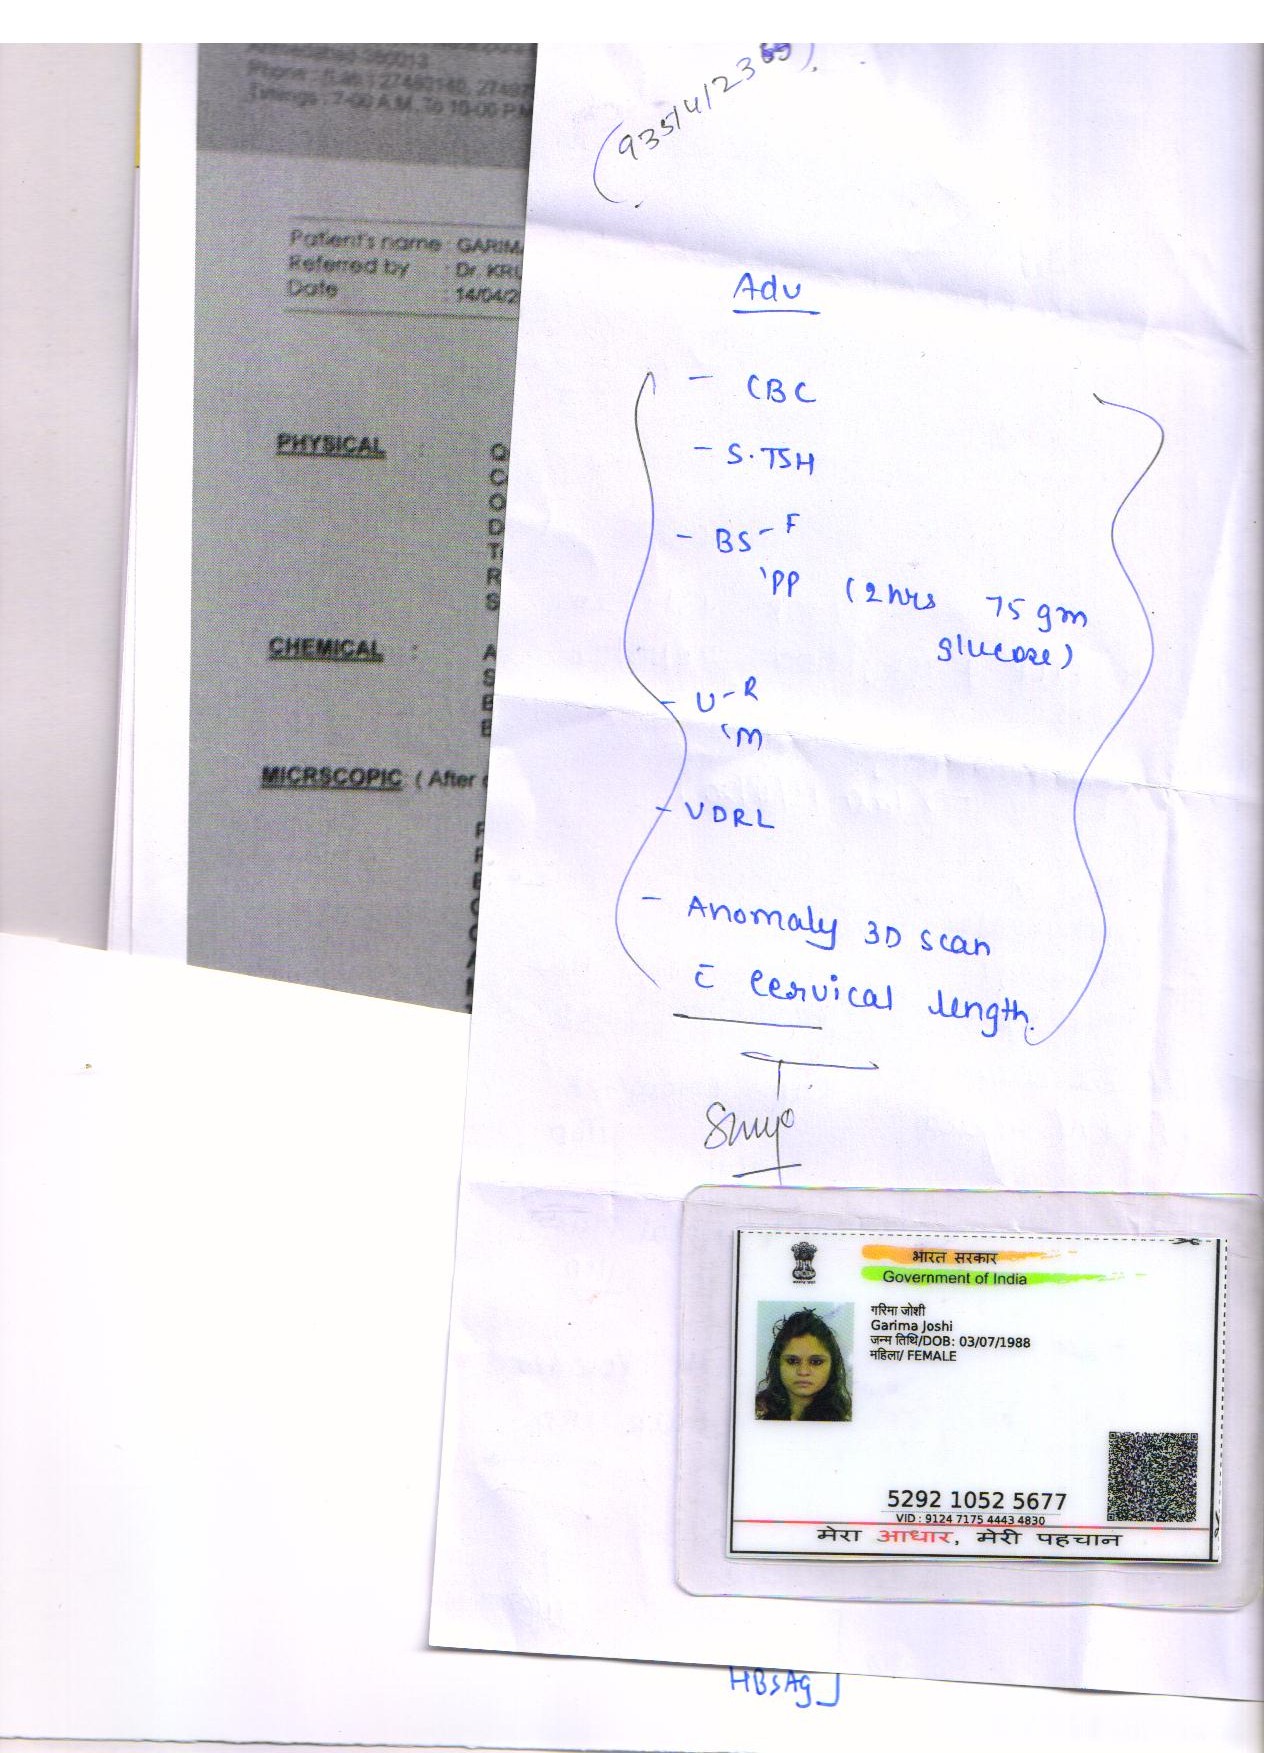 Ahmedabad-380013
Phone : (Lab.) 27480140, 27482
Timings : 7-00 A.M. To 10-00 P.M
Patient's name : GARIMA
Referred by : Dr. KRU
Date : 14/04/2
PHYSICAL :
Q
C
O
D
T
R
S
CHEMICAL :
A
S
B
B
MICRSCOPIC ( After
Adv
- CBC
- S.TSH
- BS - F
PP (2hrs 75 gm
glucose)
- U - R
M
- VDRL
- Anomaly 3D scan
c̄ cervical length.
भारत सरकार
Government of India
गरिमा जोशी
Garima Joshi
जन्म तिथि/DOB: 03/07/1988
महिला/ FEMALE
5292 1052 5677
VID : 9124 7175 4443 4830
मेरा आधार, मेरी पहचान
HBsAg